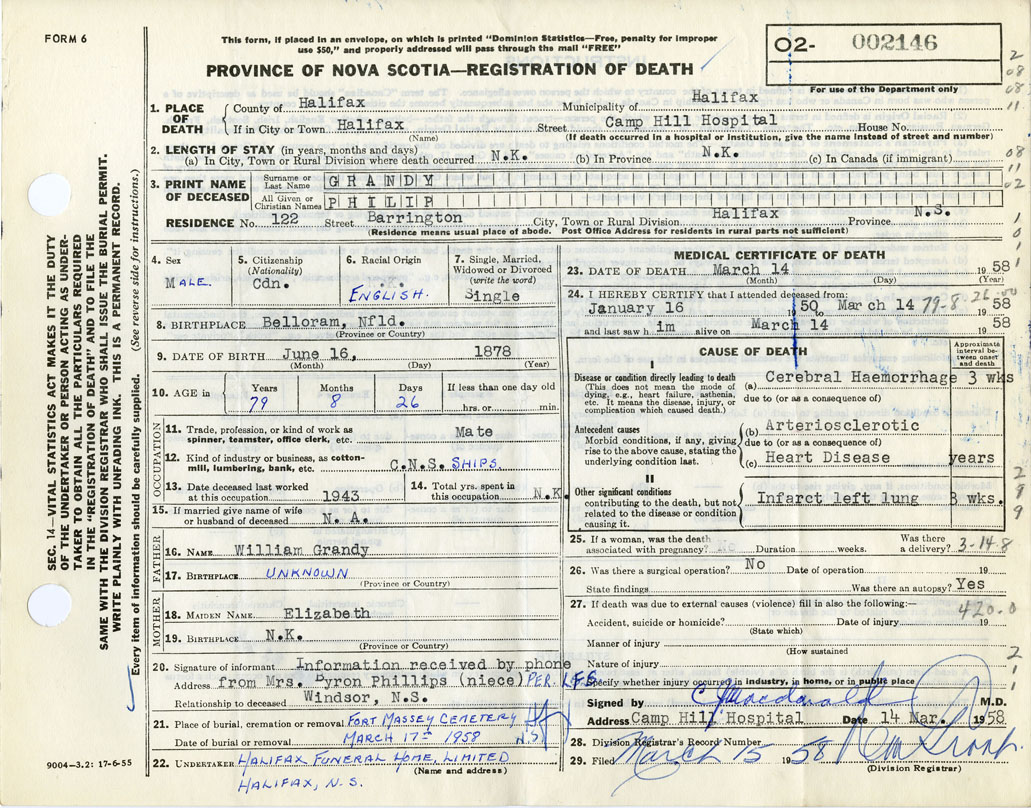 FORM 6
This form, if placed in an envelope, on which is printed "Dominion Statistics—Free, penalty for improper
use $50," and properly addressed will pass through the mail "FREE"
PROVINCE OF NOVA SCOTIA—REGISTRATION OF DEATH
02- 002146
For use of the Department only
1. PLACE OF DEATH
County of Halifax Municipality of Halifax
If in City or Town Halifax Street Camp Hill Hospital House No.
(Name) (If death occurred in a hospital or institution, give the name instead of street and number)
2. LENGTH OF STAY (in years, months and days)
(a) In City, Town or Rural Division where death occurred N.K. (b) In Province N.K. (c) In Canada (if immigrant)
3. PRINT NAME OF DECEASED
Surname or Last Name GRANDY
All Given or Christian Names PHILIP
RESIDENCE No. 122 Street Barrington City, Town or Rural Division Halifax Province N.S.
(Residence means usual place of abode. Post Office Address for residents in rural parts not sufficient)
4. Sex
MALE.
5. Citizenship
(Nationality)
Cdn.
6. Racial Origin
.K.
ENGLISH.
7. Single, Married,
Widowed or Divorced
(write the word)
Single
8. BIRTHPLACE Belloram, Nfld.
(Province or Country)
9. DATE OF BIRTH June 16, 1878
(Month) (Day) (Year)
10. AGE in
Years Months Days If less than one day old
79 8 26 hrs. or min.
OCCUPATION
11. Trade, profession, or kind of work as
spinner, teamster, office clerk, etc. Mate
12. Kind of industry or business, as cotton-
mill, lumbering, bank, etc. C.N.S. SHIPS.
13. Date deceased last worked
at this occupation 1943
14. Total yrs. spent in
this occupation N.K.
15. If married give name of wife
or husband of deceased N. A.
FATHER
16. NAME William Grandy
17. BIRTHPLACE UNKNOWN
(Province or Country)
MOTHER
18. MAIDEN NAME Elizabeth
19. BIRTHPLACE N.K.
(Province or Country)
20. Signature of informant Information received by phone
Address from Mrs. Byron Phillips (niece) PER. L.F.S.
Relationship to deceased Windsor, N.S.
21. Place of burial, cremation or removal FORT MASSEY CEMETERY
Date of burial or removal MARCH 17th 1958 N.S.
22. UNDERTAKER HALIFAX FUNERAL HOME, LIMITED
(Name and address)
HALIFAX, N.S.
9004—3.2: 17-6-55
MEDICAL CERTIFICATE OF DEATH
23. DATE OF DEATH March 14 1958
(Month) (Day) (Year)
24. I HEREBY CERTIFY that I attended deceased from:
January 16 1950 to March 14 79-8-26.00
and last saw h im alive on March 14 1958
CAUSE OF DEATH
Approximate
interval be-
tween onset
and death
I
Disease or condition directly leading to death
(This does not mean the mode of
dying, e.g., heart failure, asthenia,
etc. It means the disease, injury, or
complication which caused death.)
(a) Cerebral Haemorrhage 3 wks
due to (or as a consequence of)
Antecedent causes
Morbid conditions, if any, giving
rise to the above cause, stating the
underlying condition last.
(b) Arteriosclerotic
due to (or as a consequence of)
(c) Heart Disease years
II
Other significant conditions
contributing to the death, but not
related to the disease or condition
causing it.
Infarct left lung 3 wks.
25. If a woman, was the death
associated with pregnancy? Duration weeks. Was there
a delivery? 3-14-8
26. Was there a surgical operation? No Date of operation 19
State findings Was there an autopsy? Yes
27. If death was due to external causes (violence) fill in also the following:—
420.0
Accident, suicide or homicide? Date of injury 19
(State which)
Manner of injury
(How sustained
Nature of injury
Specify whether injury occurred in industry, in home, or in public place
Signed by C Macdonald M.D.
Address Camp Hill Hospital Date 14 Mar. 1958
28. Division Registrar's Record Number
29. Filed March 15 1958
(Division Registrar)
SEC. 14—VITAL STATISTICS ACT MAKES IT THE DUTY
OF THE UNDERTAKER OR PERSON ACTING AS UNDER-
TAKER TO OBTAIN ALL THE PARTICULARS REQUIRED
IN THE "REGISTRATION OF DEATH" AND TO FILE THE
SAME WITH THE DIVISION REGISTRAR WHO SHALL ISSUE THE BURIAL PERMIT.
WRITE PLAINLY WITH UNFADING INK. THIS IS A PERMANENT RECORD.
Every item of information should be carefully supplied. (See reverse side for instructions.)
2
08
08
11
08
11
02
1
0
1
1
2
9
9
2
1
1